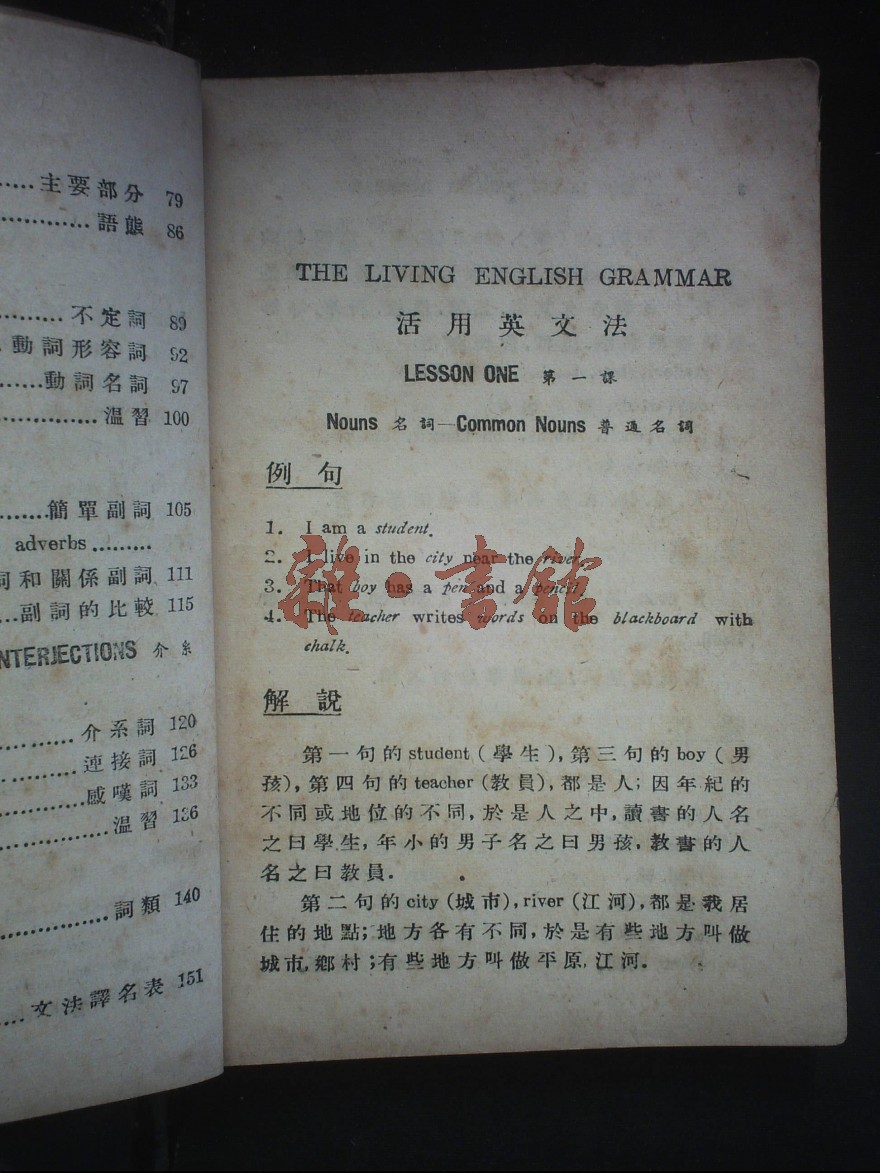 主要部分 79
語態 86
不定詞 89
動詞形容詞 92
動詞名詞 97
温習 100
簡單副詞 105
adverbs
詞和關係副詞 111
副詞的比較 115
NTERJECTIONS 介系
介系詞 120
連接詞 126
感嘆詞 133
温習 136
詞類 140
文法譯名表 151
THE LIVING ENGLISH GRAMMAR
活用英文法
LESSON ONE 第一課
Nouns 名詞—Common Nouns 普通名詞
例句
1. I am a student.
2. I live in the city near the river.
3. That boy has a pen and a pencil.
4. The teacher writes words on the blackboard with
chalk.
雜·書館
解說
第一句的student(學生),第三句的boy(男
孩),第四句的teacher(教員),都是人;因年紀的
不同或地位的不同,於是人之中,讀書的人名
之曰學生,年小的男子名之曰男孩,教書的人
名之曰教員.
第二句的city(城市),river(江河),都是我居
住的地點;地方各有不同,於是有些地方叫做
城市,鄉村;有些地方叫做平原,江河.